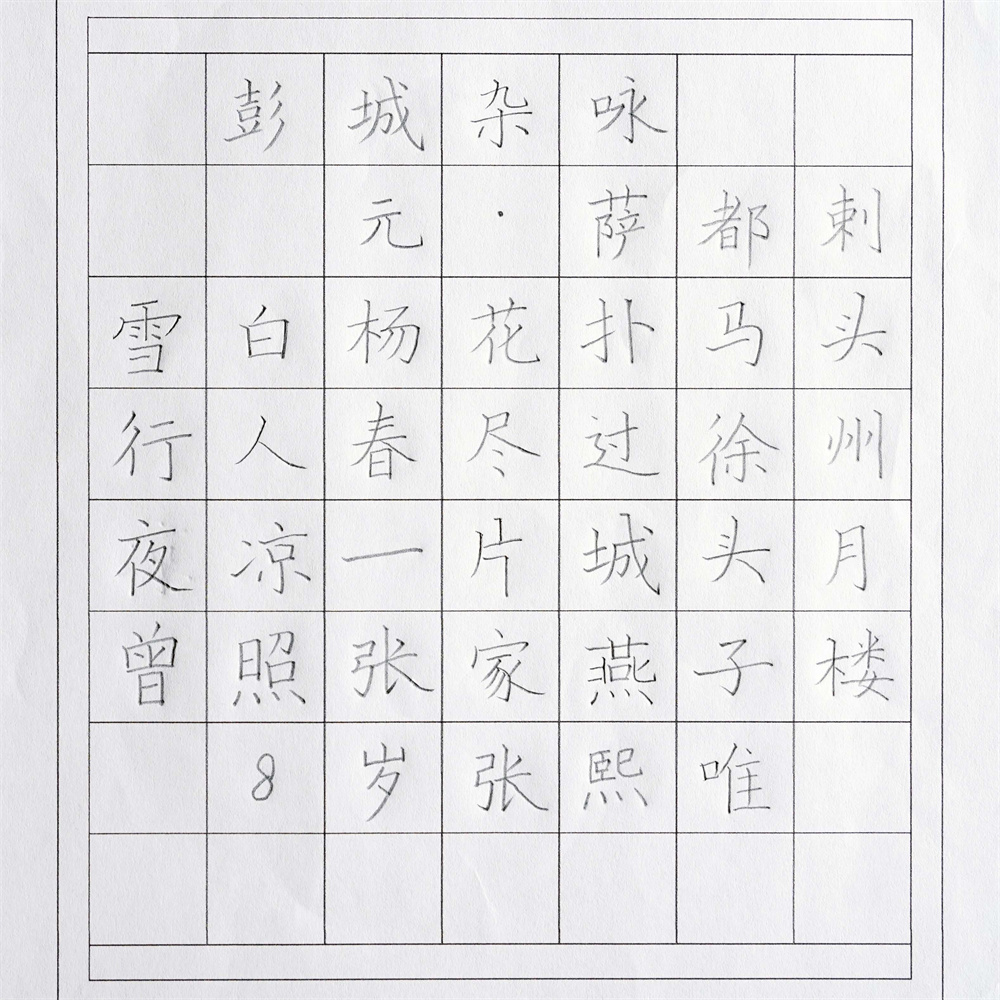 彭城杂咏
元·萨都剌
雪白杨花扑马头
行人春尽过徐州
夜凉一片城头月
曾照张家燕子楼
8岁张熙唯